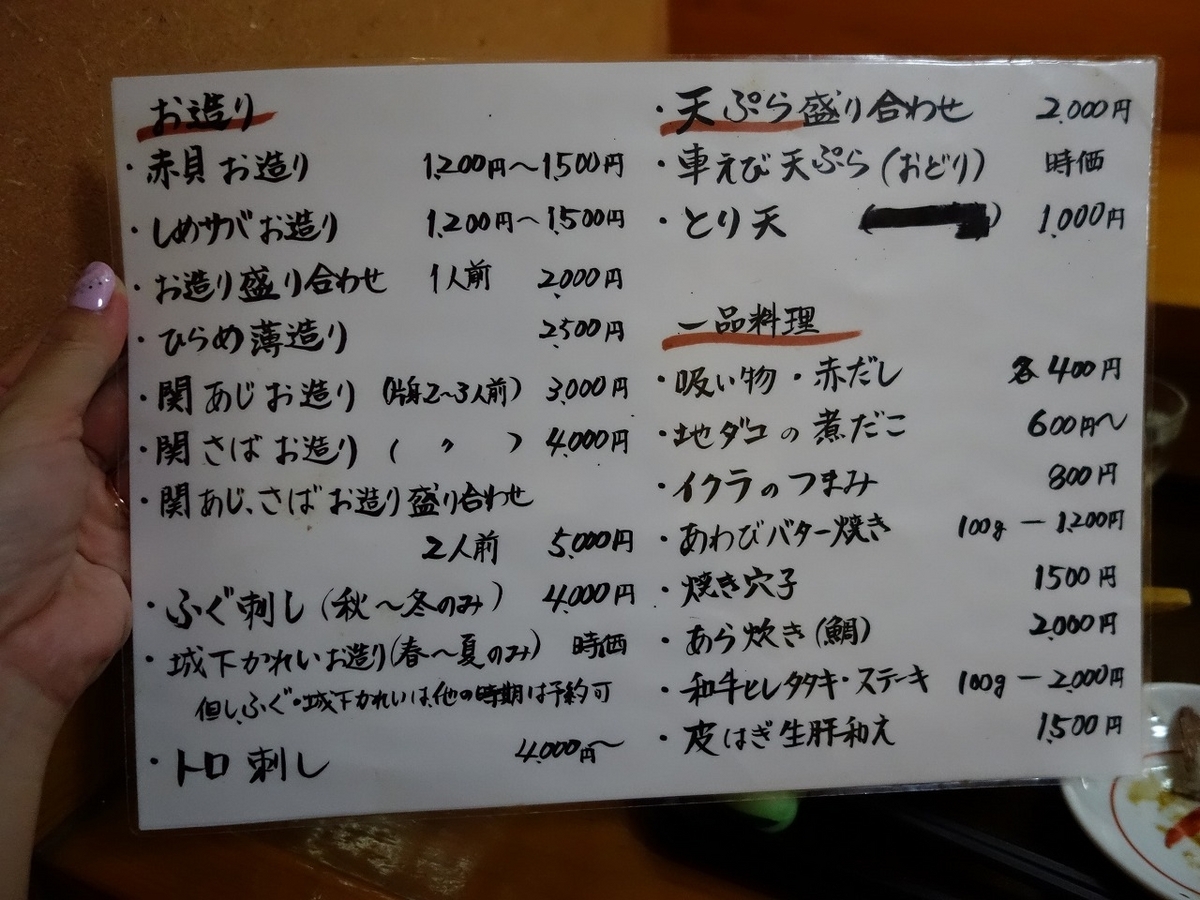 お造り
・赤貝お造り 1,200円〜1,500円
・しめサバお造り 1,200円〜1,500円
・お造り盛り合わせ 1人前 2,000円
・ひらめ薄造り 2,500円
・関あじお造り (片身2〜3人前) 3,000円
・関さばお造り ( 〃 ) 4,000円
・関あじ、さばお造り盛り合わせ
2人前 5,000円
・ふぐ刺し(秋〜冬のみ) 4,000円
・城下かれいお造り(春〜夏のみ) 時価
但し、ふぐ・城下かれいは、他の時期は予約可
・トロ刺し 4,000円〜
・天ぷら盛り合わせ 2,000円
・車えび天ぷら(おどり) 時価
・とり天 ( ) 1,000円
一品料理
・吸い物・赤だし 各400円
・地ダコの煮だこ 600円〜
・イクラのつまみ 800円
・あわびバター焼き 100g ー 1,200円
・焼き穴子 1500円
・あら炊き(鯛) 2,000円
・和牛ヒレタタキ・ステーキ 100g ー 2,000円
・皮はぎ生肝和え 1,500円